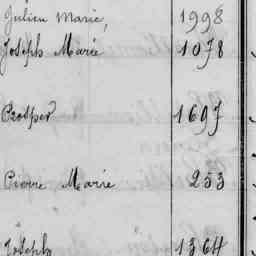 Julien Marie, 1998
Joseph Marie 1078
Prosper 1697
Pierre Marie 253
Joseph 1364